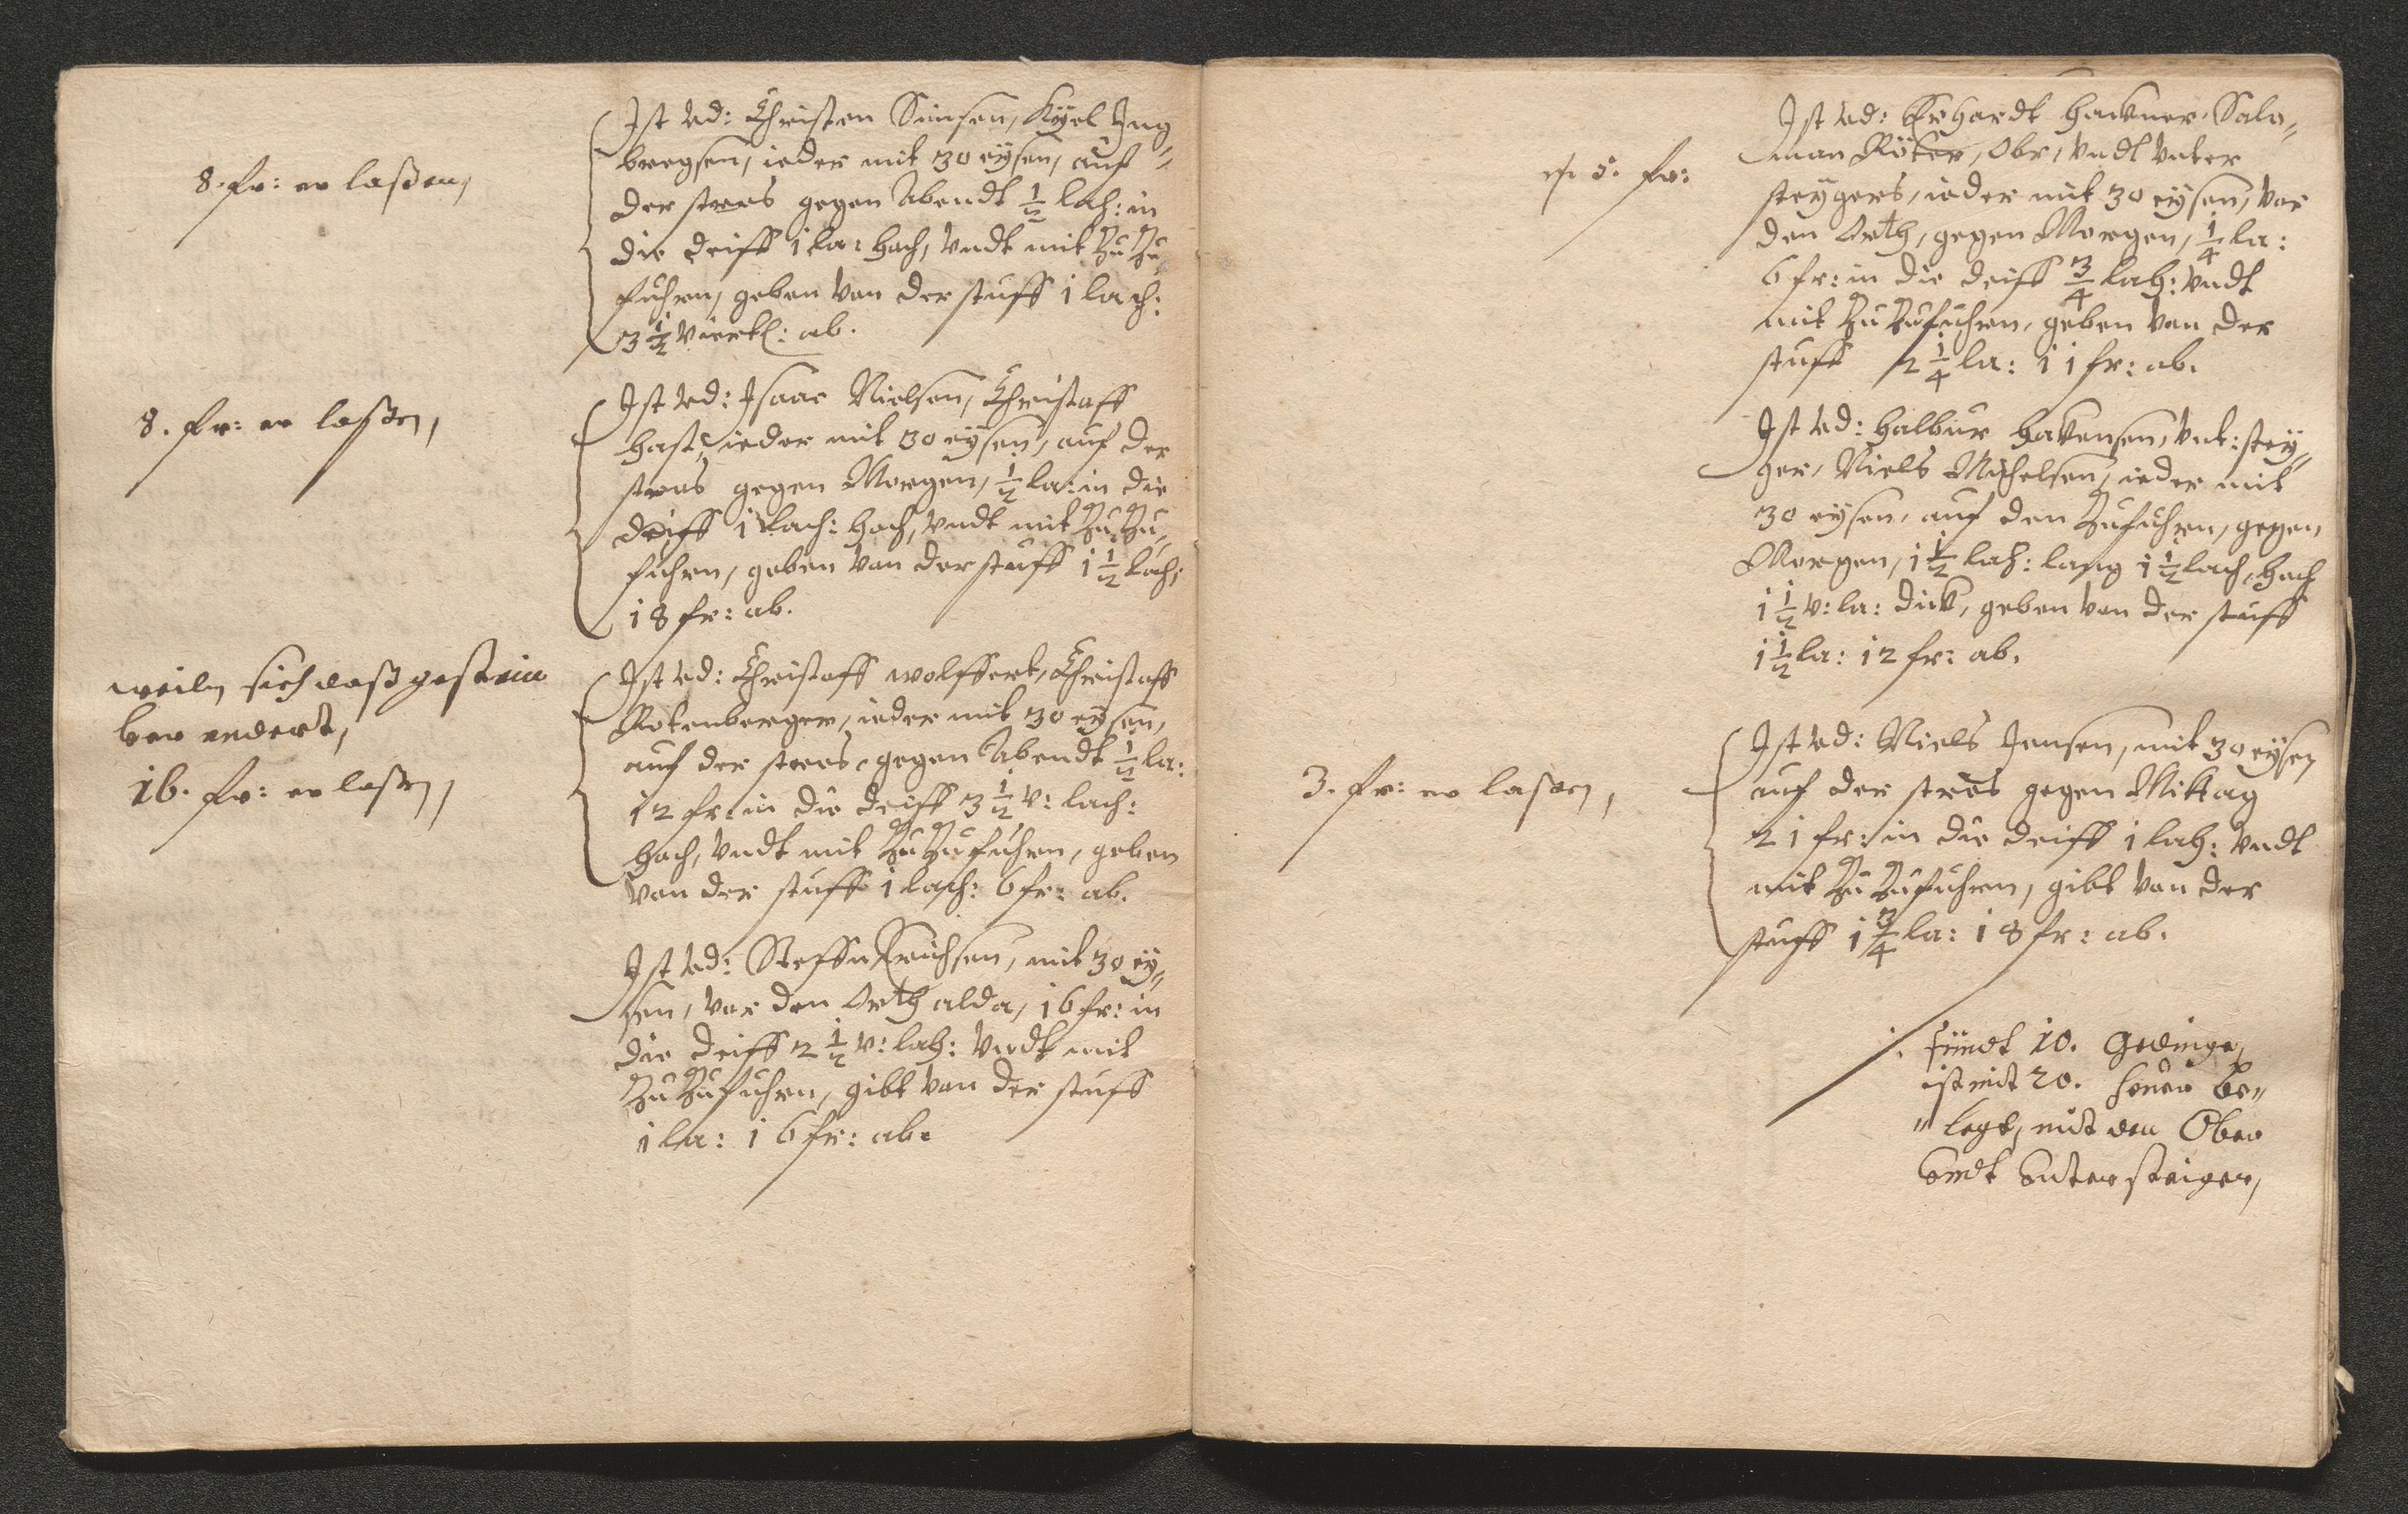 8. fr: er laßen,
Ist vd: Christen Simsen, Kyel Ing„
bregsen, ieder mit 30 eysen, auf
der stros gegen Abendt 1/2 lah: in
die deiff 1 la: hoch, vndt mit Zu Zu„
fuhren, geben von der stuff 1 lach:
3 1/2 viertl: ab.
8. fr: er laßen,
Ist vd: Isaac Nielsen, Christoff
Hast, ieder mit 30 eysen, auf der
stros gegen Morgen, 1/2 la: in die
deiff 1 lach: hoch, vndt mit Zu Zu„
fuhren, geben von der stuff 1 1/2 lach:
18 fr: ab.
weiln sich daß gestein
ver endert,
16. fr: er laßen,
Ist vd: Christoff wolffert, Christoff
Rotenberger, ieder mit 30 eysen,
auf der stros, gegen Abendt 1/2 la:
12 fr: in die deiff 3 1/2 v: lach:
hoch, vndt mit Zu Zufuhren, geben
von der stuff 1 lach: 6 fr: ab.
Ist vd: Steffn Erichsen, mit 30 ey„
sen, vor den Orth alda, 16 fr: in
die deiff 2 1/2 v: lah: vndt mit
Zu Zufuhren, gibt von der stuff
1 la: 16 fr: ab.
5. fr:
Ist vd: Erhardt Hackner, Salo„
mon Röter, Obr, vndt vnter
steygers, ieder mit 30 eysen, vor
den Orth, gegen Morgen, 1/4 la:
6 fr: in die deiff 3/4 lah: vndt
mit Zu Zufuhren, geben von der
stuff 2 1/4 la: 11 fr: ab.
Ist vd: Halbur Hakensen, vnt: stey„
ger, Niels Michelsen, ieder mit
30 eysen, auf den Zufuhren, gegen
Morgen, 1 1/2 lah: lang 1 1/2 lach: hoch
1 1/2 v: la: dick, geben von der stuff
1 1/2 la: 12 fr: ab.
3. fr: er laßen,
Ist vd: Niels Jensen, mit 30 eysen
auf der stros gegen Mittag
21 fr: in die deiff 1 lah: vndt
mit Zu Zufuhren, gibt von der
stuff 1 3/4 la: 18 fr: ab.
/. sindt 10. Gedinge,
ist mit 20. heuer be„
„legt, mit den Ober
vndt vntersteiger,